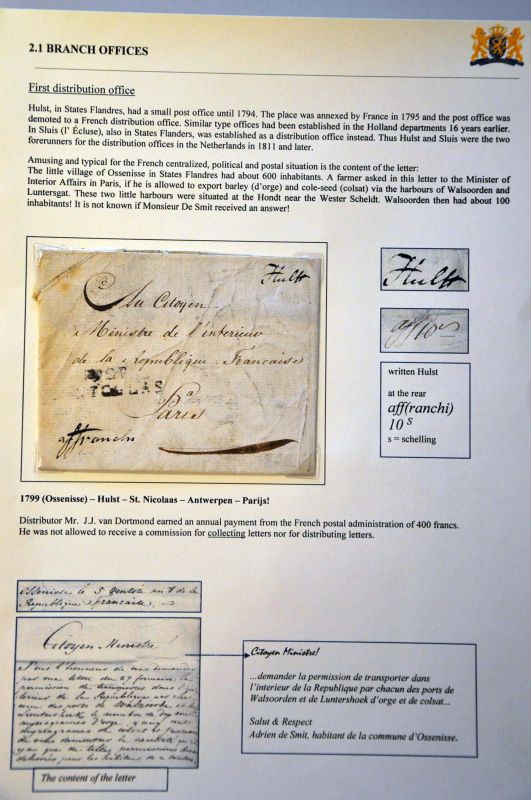 2.1 BRANCH OFFICES
First distribution office
Hulst, in States Flandres, had a small post office until 1794. The place was annexed by France in 1795 and the post office was
demoted to a French distribution office. Similar type offices had been established in the Holland departments 16 years earlier.
In Sluis (l' Écluse), also in States Flanders, was established as a distribution office instead. Thus Hulst and Sluis were the two
forerunners for the distribution offices in the Netherlands in 1811 and later.
Amusing and typical for the French centralized, political and postal situation is the content of the letter:
The little village of Ossenisse in States Flandres had about 600 inhabitants. A farmer asked in this letter to the Minister of
Interior Affairs in Paris, if he is allowed to export barley (d'orge) and cole-seed (colsat) via the harbours of Walsoorden and
Luntersgat. These two little harbours were situated at the Hondt near the Wester Scheldt. Walsoorden then had about 100
inhabitants! It is not known if Monsieur De Smit received an answer!
Hulst
Au Citoyen
Ministre de l'interieur
de la Republique Francaise
a
Paris
affranchi
Hulst
aff 10s
written Hulst
at the rear
aff(ranchi)
10 s
s = schelling
1799 (Ossenisse) – Hulst – St. Nicolaas – Antwerpen – Parijs!
Distributor Mr. J.J. van Dortmond earned an annual payment from the French postal administration of 400 francs.
He was not allowed to receive a commission for collecting letters nor for distributing letters.
Ossenisse le 5 Ventose an 7 de la
Republique francaise
Citoyen Ministre
Citoyen Ministre!
...demander la permission de transporter dans
l'interieur de la Republique par chacun des ports de
Walsoorden et de Luntershoek d'orge et de colsat...
Salut & Respect
Adrien de Smit, habitant de la commune d'Ossenisse.
The content of the letter